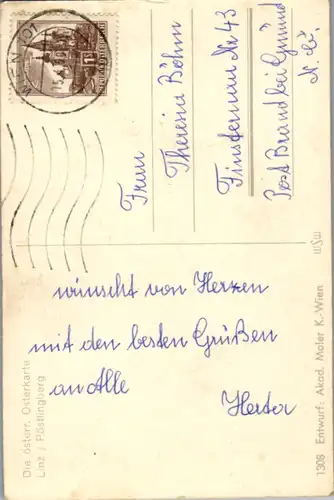 Frau
Theresia Böhm
Finsternau Nr 43
Post Brand bei Gmünd
N.Ö.
wünscht von Herzen
mit den besten Grüßen
an Alle
Herta
Die österr. Osterkarte
Linz / Pöstlingberg
1308 Entwurf: Akad. Maler K.-Wien
WSW